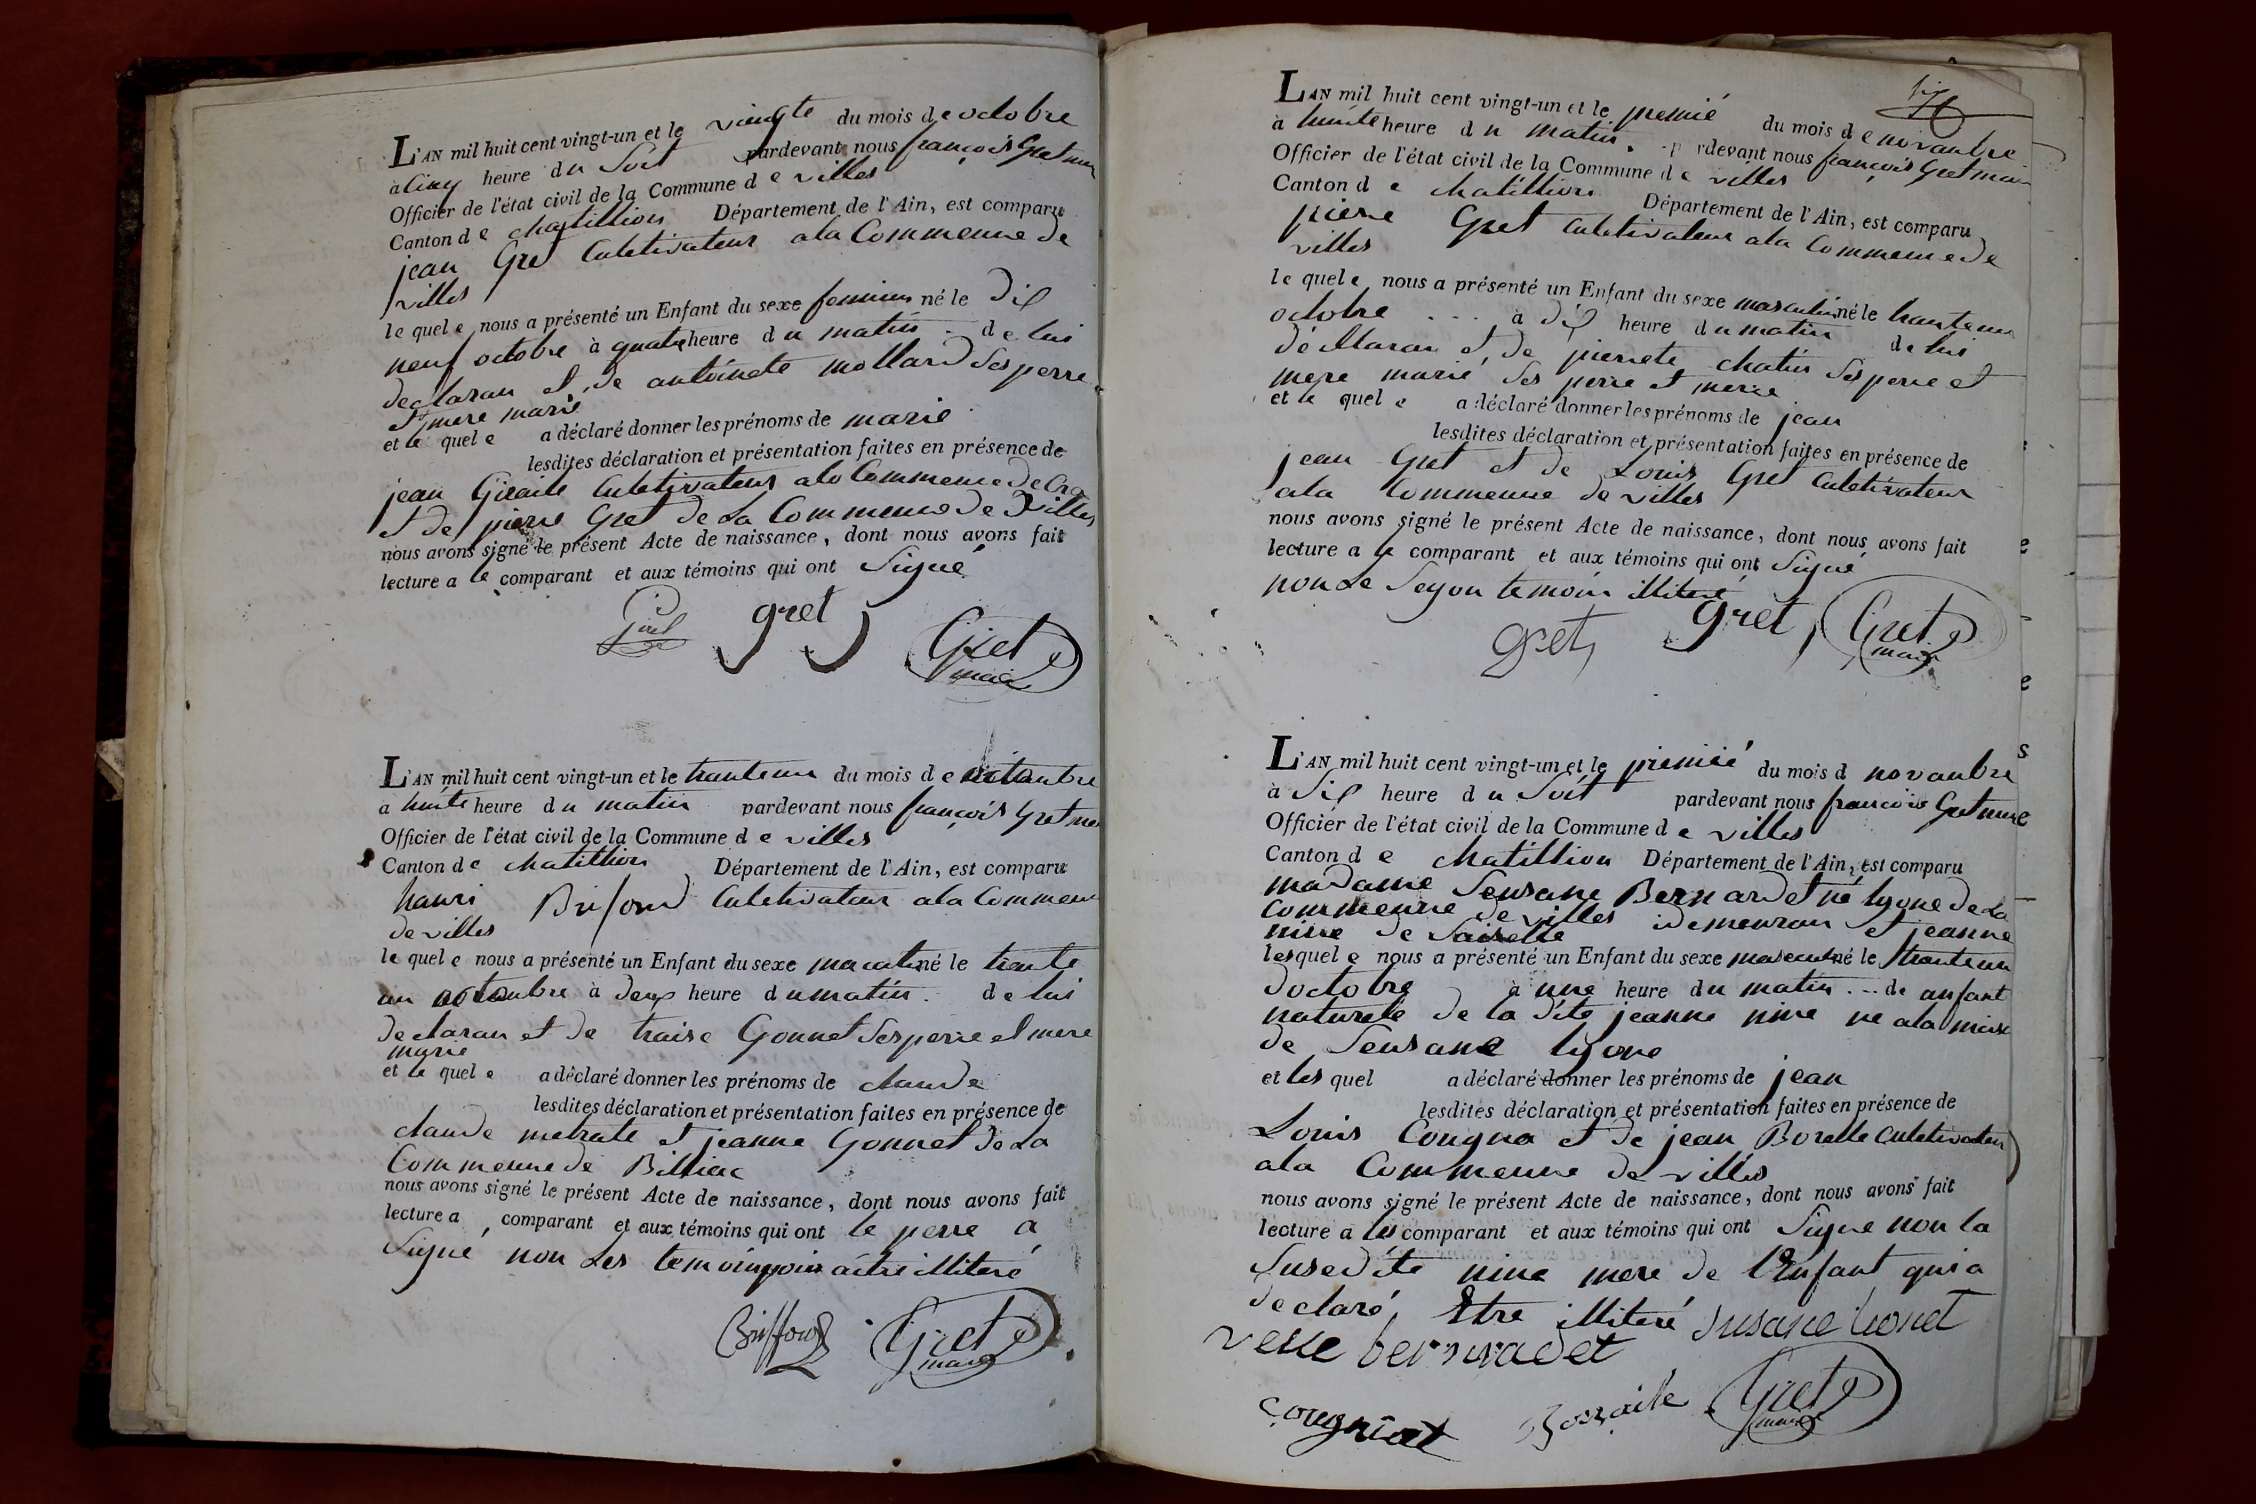 L'AN mil huit cent vingt-un et le vingte du mois de octobre
à cinq heure du Soit pardevant nous françois Gret
Officier de l'état civil de la Commune de villes
Canton de chatillion Département de l'Ain, est comparu
jean Gret Culetivateur a la Commenne de
villes
le quel e nous a présenté un Enfant du sexe feminin né le dix
neuf octobre à quatre heure du matin de lui
declaran et de antoinete mollard ses perre
et mere marié
et le quel e a déclaré donner les prénoms de marie
lesdites déclaration et présentation faites en présence de
jean Giraite Culetivateur a la Commenne de
et de pierre Gret de La Commenne de villes
nous avons signé le présent Acte de naissance, dont nous avons fait
lecture a le comparant et aux témoins qui ont Signé
gret
Gret
maire
L'AN mil huit cent vingt-un et le trante un du mois de
a huite heure du matin pardevant nous françois Gret
Officier de l'état civil de la Commune de villes
Canton de chatillion Département de l'Ain, est comparu
hanri Brifond Culetivateur a la Commenne
de villes
le quel e nous a présenté un Enfant du sexe né le trante
un à deux heure du matin de lui
declaran et de traise Gonnet ses perre et mere
marie
et le quel e a déclaré donner les prénoms de claude
lesdites déclaration et présentation faites en présence de
claude metrale et jeanne Gonnet de La
Commenne de Billiac
nous avons signé le présent Acte de naissance, dont nous avons fait
lecture a comparant et aux témoins qui ont le perre a
Signé non Les illiteré
Briffond
Gret
maire
L'AN mil huit cent vingt-un et le premié du mois de novanbre
à huite heure du matin pardevant nous françois Gret maire
Officier de l'état civil de la Commune de villes
Canton de chatillion Département de l'Ain, est comparu
pierre Gret Culetivateur a la Commenne de
villes
le quel e nous a présenté un Enfant du sexe masculin né le trante un
octobre à dix heure du matin de lui
déClaran et de pierrete chatin ses perre et
mere marié ses perre et merre
et le quel e a déclaré donner les prénoms de jean
lesdites déclaration et présentation faites en présence de
jean Gret et de Louis Gret Culetivateur
a la Commenne de villes
nous avons signé le présent Acte de naissance, dont nous avons fait
lecture a le comparant et aux témoins qui ont Signé
non Le Segon temoin illiteré
gret
gret
Gret
maire
L'AN mil huit cent vingt-un et le premié du mois d novanbre
à Six heure du Soit pardevant nous françois Gret
Officier de l'état civil de la Commune de villes
Canton de chatillion Département de l'Ain, est comparu
madame Seusane Bernardet né lyone de La
commenne de villes idemeuran et jeanne
nine de
lesquel e nous a présenté un Enfant du sexe né le trante un
doctobre à une heure du matin de anfant
naturele de la dite jeanne nine ne a la
de Seusane lyone
et les quel a déclaré donner les prénoms de jean
lesdites déclaration et présentation faites en présence de
Louis Cougna et de jean Borelle Culetivateur
a la Commenne de villes
nous avons signé le présent Acte de naissance, dont nous avons fait
lecture a les comparant et aux témoins qui ont Signe non la
Susedite nine mere de l'Enfant qui a
declaré Etre illiteré Susane lionet
cougniat
Gret
maire